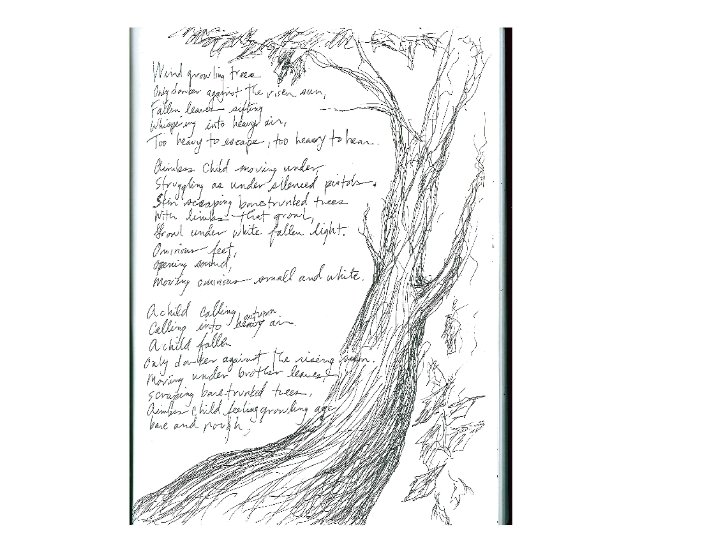 Wind growling trees
Only darker against the risen sun,
Fallen leaves sifting
Whispering into heavy air,
Too heavy to escape, too heavy to hear.
Aimless child moving under,
Struggling as under silenced pistols.
Skin scraping bare trunked trees
With limbs that growl,
Growl under white fallen light.
Ominous feet,
opening sound,
moving ominous small and white.
A child calling autumn
Calling into heavy air
A child fallen
Only darker against the rising
Moving under brother leaves,
scraping bare trunked trees,
Aimless child feeling growling age
bare and rough,